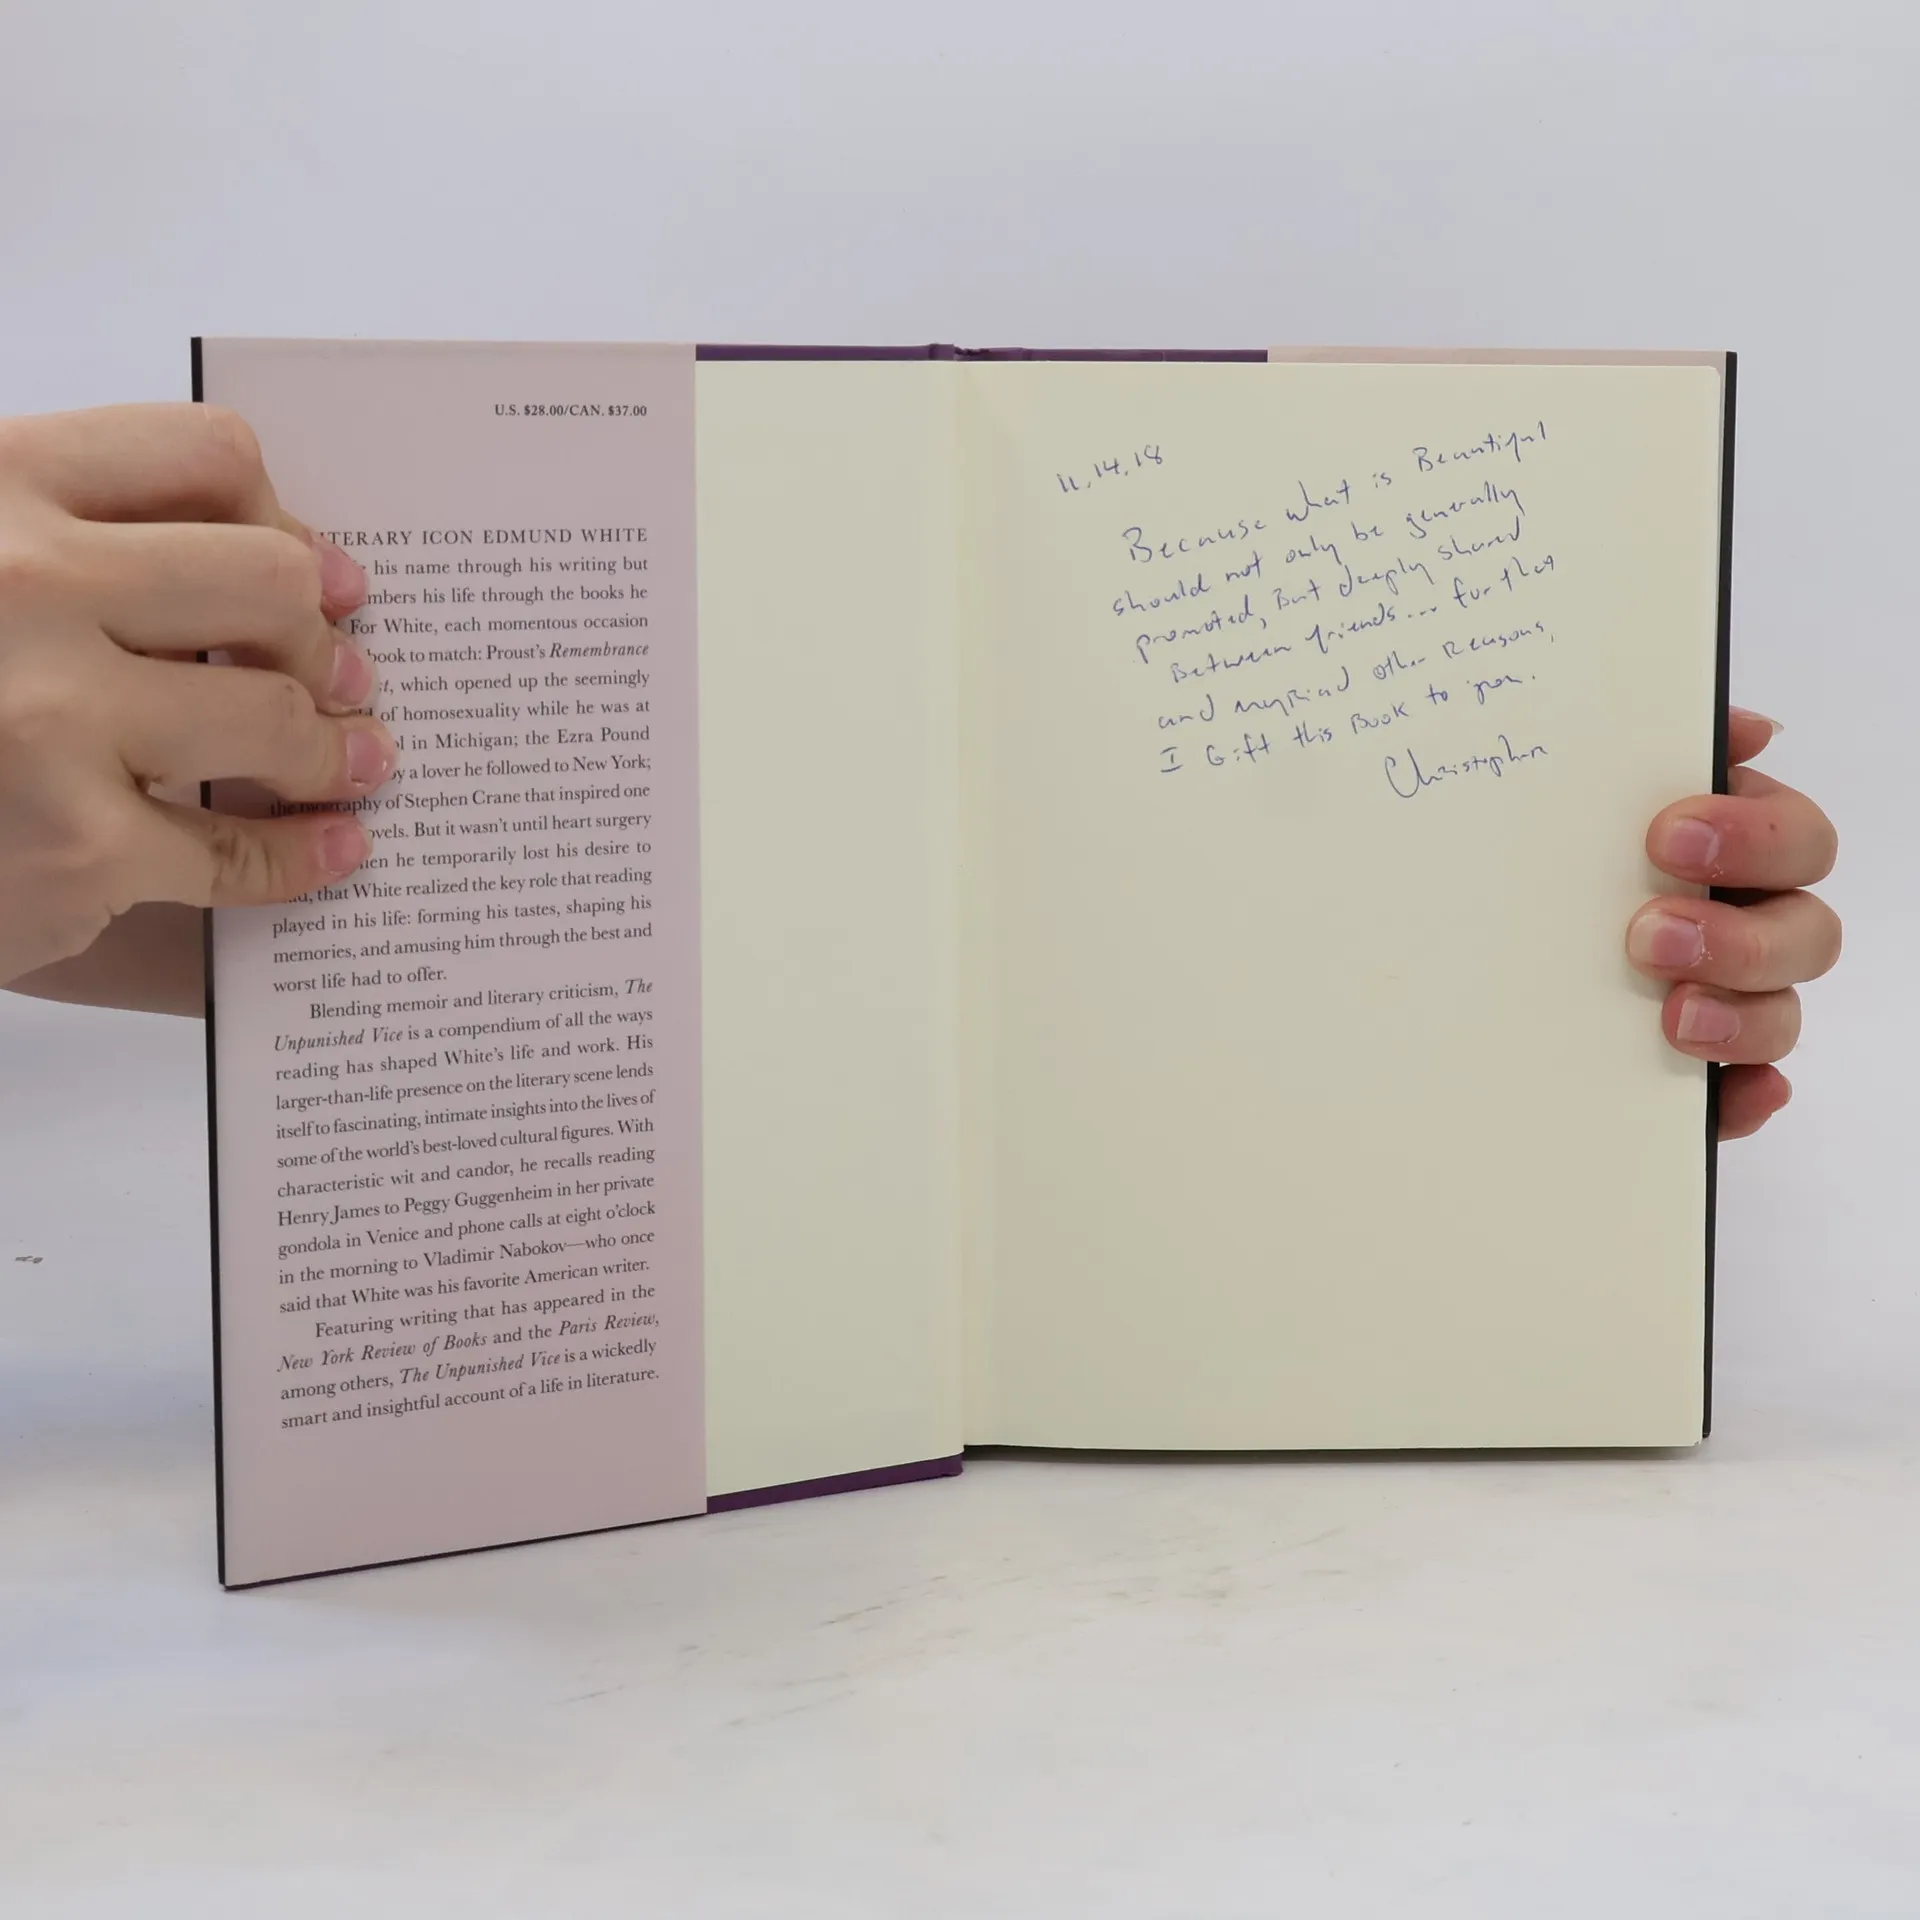 U.S. $28.00/CAN. $37.00
TERARY ICON EDMUND WHITE
his name through his writing but
mbers his life through the books he
For White, each momentous occasion
book to match: Proust's Remembrance
st, which opened up the seemingly
of homosexuality while he was at
l in Michigan; the Ezra Pound
by a lover he followed to New York;
the biography of Stephen Crane that inspired one
ovels. But it wasn't until heart surgery
hen he temporarily lost his desire to
ead, that White realized the key role that reading
played in his life: forming his tastes, shaping his
memories, and amusing him through the best and
worst life had to offer.
Blending memoir and literary criticism, The
Unpunished Vice is a compendium of all the ways
reading has shaped White's life and work. His
larger-than-life presence on the literary scene lends
itself to fascinating, intimate insights into the lives of
some of the world's best-loved cultural figures. With
characteristic wit and candor, he recalls reading
Henry James to Peggy Guggenheim in her private
gondola in Venice and phone calls at eight o'clock
in the morning to Vladimir Nabokov—who once
said that White was his favorite American writer.
Featuring writing that has appeared in the
New York Review of Books and the Paris Review,
among others, The Unpunished Vice is a wickedly
smart and insightful account of a life in literature.
11.14.18
Because what is Beautiful
should not only be generally
promoted, But deeply shared
Between friends... for that
and myriad other Reasons,
I Gift this Book to you.
Christopher